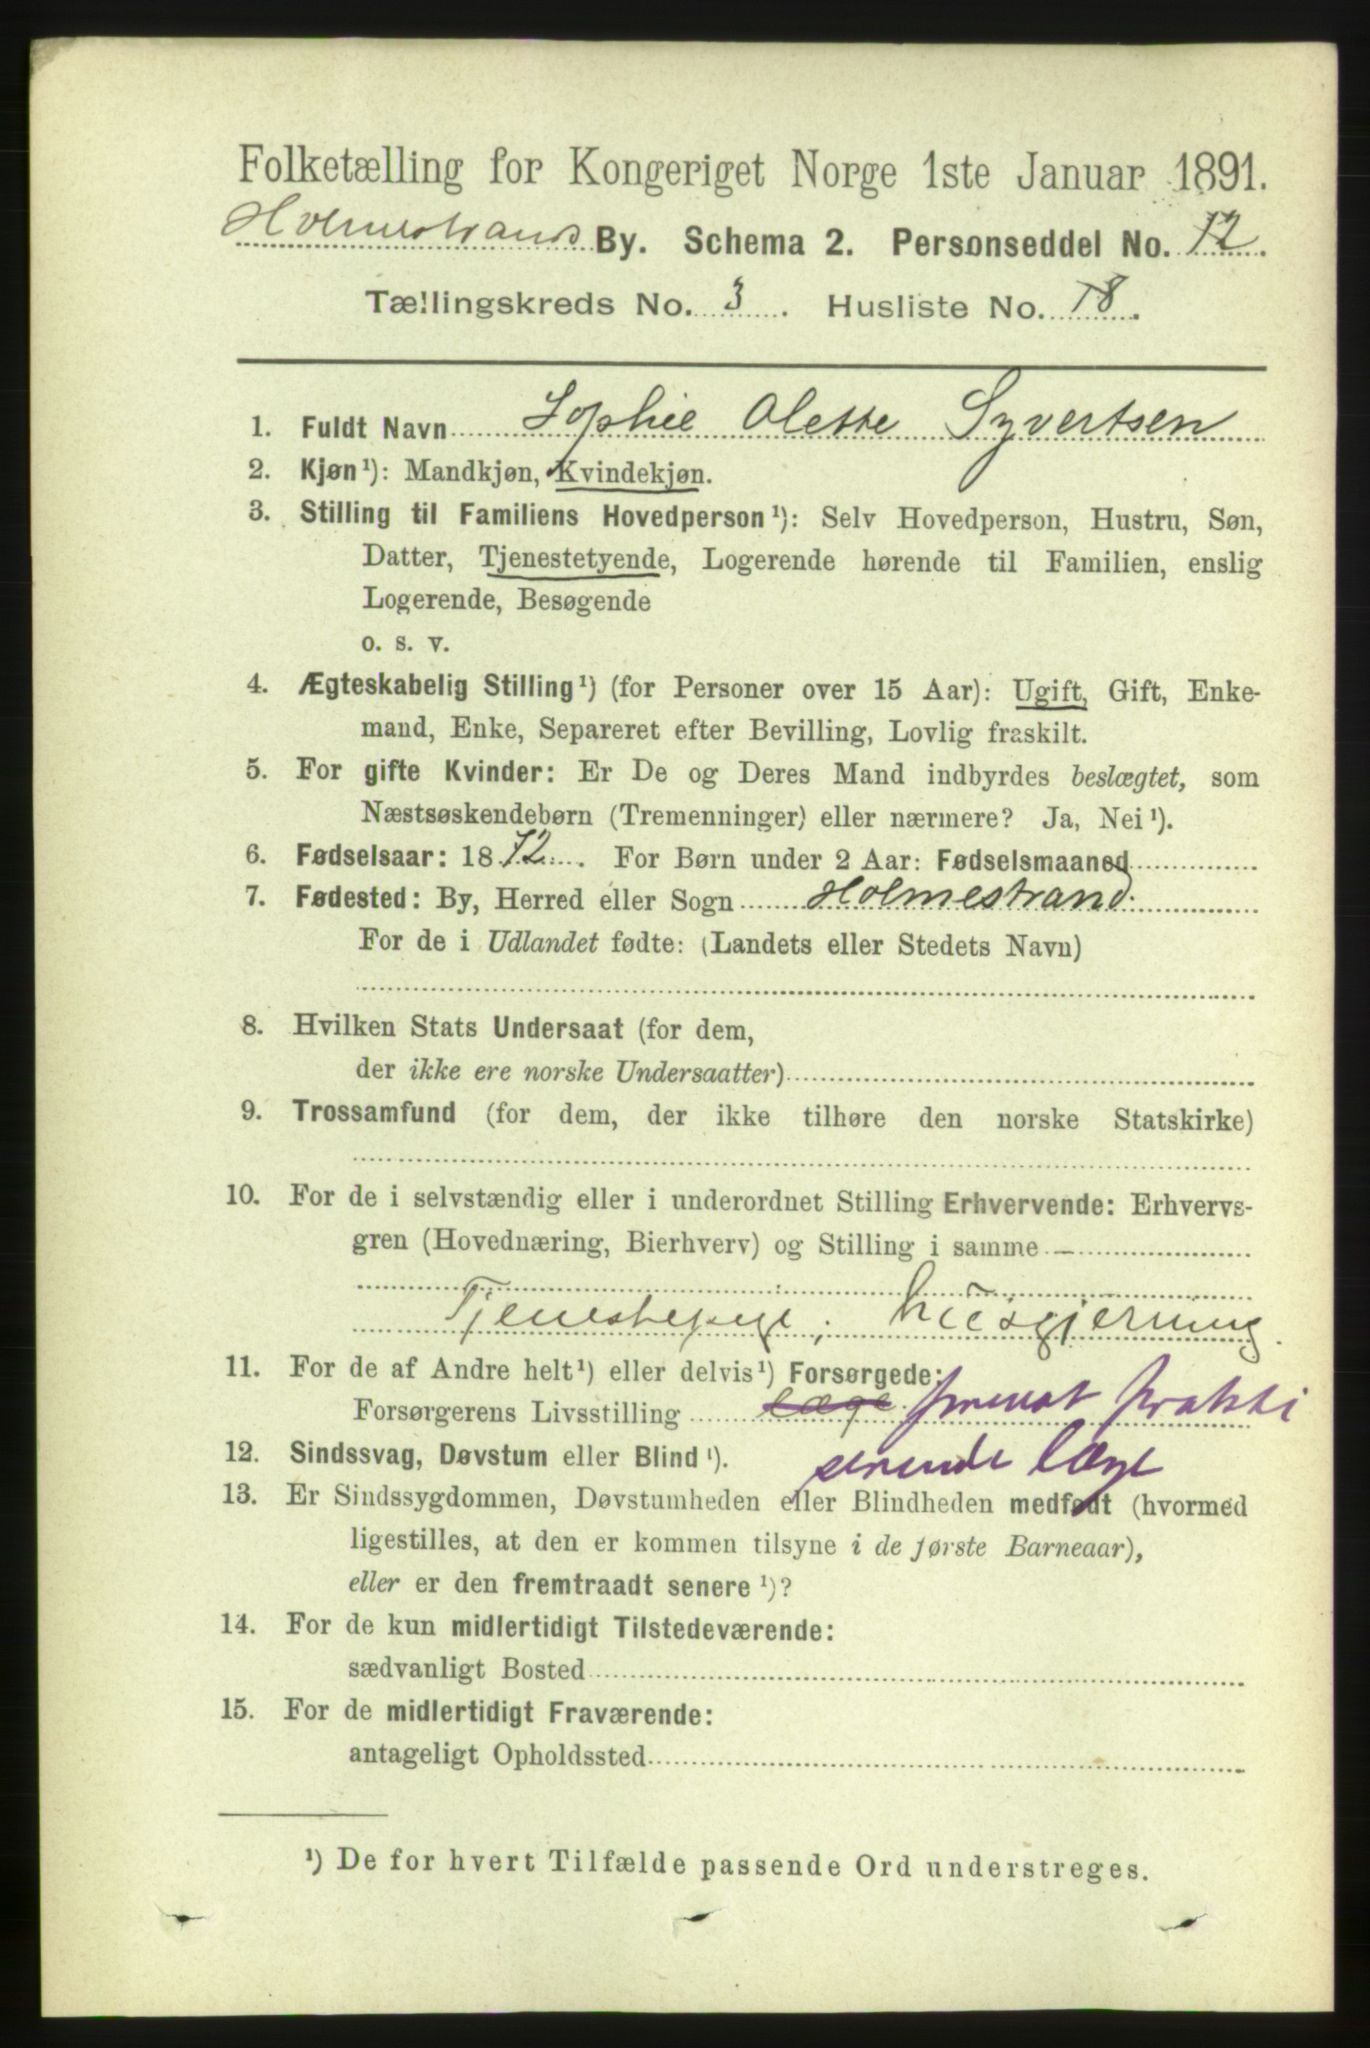 Folketælling for Kongeriget Norge 1ste Januar 1891.
Holmestrands By. Schema 2. Personseddel No. 12.
Tællingskreds No. 3. Husliste No. 18.
1. Fuldt Navn Sophie Olette Syvertsen
2. Kjøn¹): Mandkjøn, Kvindekjøn.
3. Stilling til Familiens Hovedperson¹): Selv Hovedperson, Hustru, Søn,
Datter, Tjenestetyende, Logerende hørende til Familien, enslig
Logerende, Besøgende
o. s. v.
4. Ægteskabelig Stilling¹) (for Personer over 15 Aar): Ugift, Gift, Enke-
mand, Enke, Separeret efter Bevilling, Lovlig fraskilt.
5. For gifte Kvinder: Er De og Deres Mand indbyrdes beslægtet, som
Næstsøskendebørn (Tremenninger) eller nærmere? Ja, Nei¹).
6. Fødselsaar: 1872. For Børn under 2 Aar: Fødselsmaaned
7. Fødested: By, Herred eller Sogn Holmestrand.
For de i Udlandet fødte: (Landets eller Stedets Navn)
8. Hvilken Stats Undersaat (for dem,
der ikke ere norske Undersaatter)
9. Trossamfund (for dem, der ikke tilhøre den norske Statskirke)
10. For de i selvstændig eller i underordnet Stilling Erhvervende: Erhvervs-
gren (Hovednæring, Bierhverv) og Stilling i samme
Tjenestepige, huusgjerning
11. For de af Andre helt¹) eller delvis¹) Forsørgede:
Forsørgerens Livsstilling læge privat prakti
serende læge
12. Sindssvag, Døvstum eller Blind¹).
13. Er Sindssygdommen, Døvstumheden eller Blindheden medfødt (hvormed
ligestilles, at den er kommen tilsyne i de første Barneaar),
eller er den fremtraadt senere¹)?
14. For de kun midlertidigt Tilstedeværende:
sædvanligt Bosted
15. For de midlertidigt Fraværende:
antageligt Opholdssted
¹) De for hvert Tilfælde passende Ord understreges.